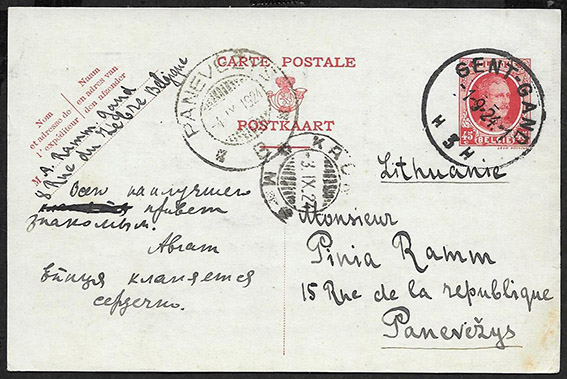 CARTE POSTALE
POSTKAART
Nom
et adresse de
l'expéditeur
Naam
en adres van
den afzender
M
A. Ramm. Gand
8 Rue du Belgique
PANEVEŽYS
4 IX 1924
KAUNAS
3 IX 24
GENT-GAND
9-24
H 3 H
45
BELGIE
Lithuanie
Всего наилучшего
привет
знакомым.
Абрам
кланяется
сердечно.
Monsieur
Pinia Ramm
15 Rue de la republique
Panevėžys